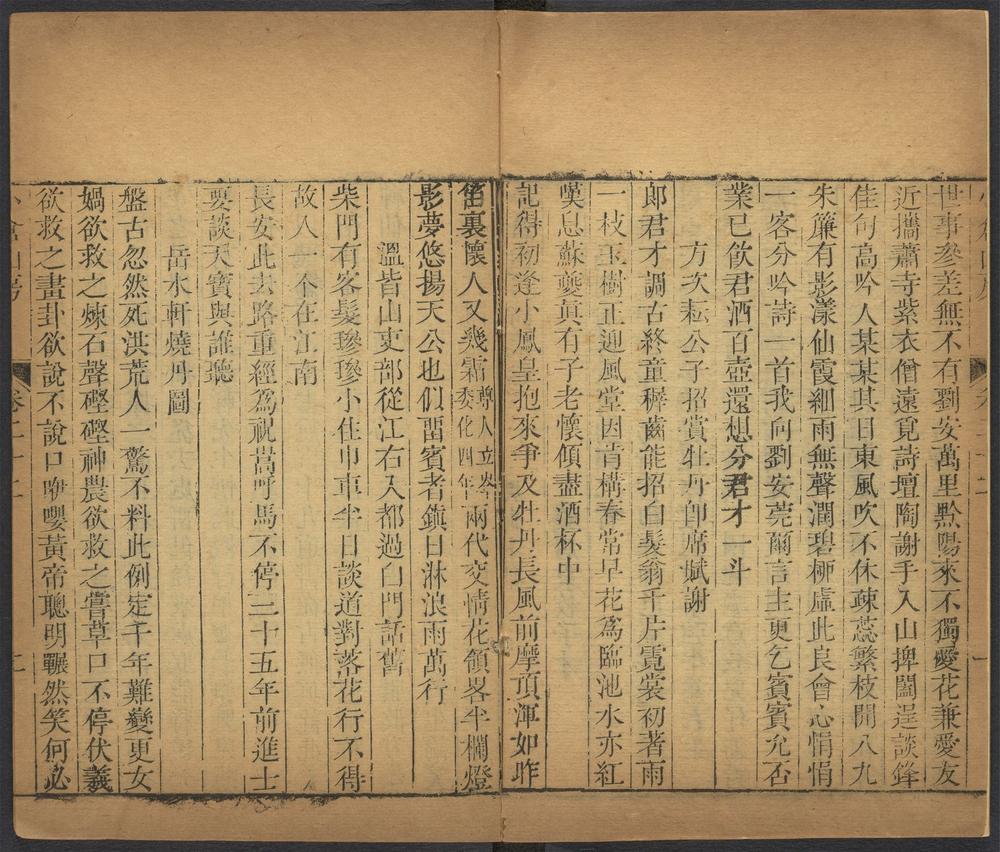 世事參差無不有劉安萬里黔陽來不獨愛花兼愛友
近攜蕭寺紫衣僧遠覓詩壇陶謝手入山捭闔逞談鋒
佳句高吟人某某其日東風吹不休疎蕊繁枝開八九
朱簾有影漾仙霞細雨無聲潤碧柳虛此良會心悁悁
一客分吟詩一首我向劉安莞爾言主更乞賓賓允否
業已飲君酒百壺還想分君才一斗
方次耘公子招賞牡丹卽席賦謝
郎君才調古終童穉齒能招白髮翁千片霓裳初著雨
一枝玉樹正迎風堂因肯構春常早花爲臨池水亦紅
嘆息蘇夔眞有子老懷傾盡酒杯中
記得初逢小鳳皇抱來爭及牡丹長風前摩頂渾如昨
笛裏懷人又幾霜尊人立岑委化四年兩代交情花領畧半欄燈
影夢悠揚天公也似畱賓者鎮日淋浪雨萬行
溫皆山吏部從江右入都過白門話舊
柴門有客髮鬖鬖小住巾車半日談道對落花行不得
故人一个在江南
長安此去路重經爲祝嵩呼馬不停二十五年前進士
要談天寶與誰聽
岳水軒燒丹圖
盤古忽然死洪荒人一驚不料此例定千年難變更女
媧欲救之煉石聲硜硜神農欲救之嘗草口不停伏羲
欲救之畫卦欲說不說口咿嚶黃帝聰明囅然笑何必
小倉山房
卷二十七
七